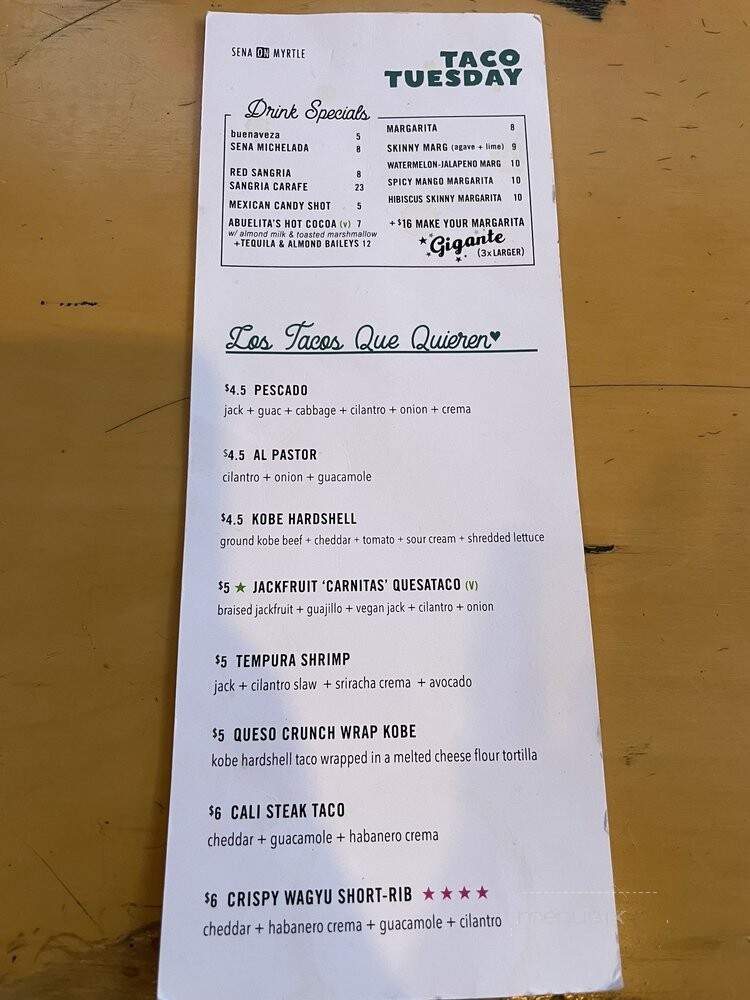 SENA ON MYRTLE
TACO
TUESDAY
Drink Specials
buenaveza 5
SENA MICHELADA 8
RED SANGRIA 8
SANGRIA CARAFE 23
MEXICAN CANDY SHOT 5
ABUELITA'S HOT COCOA (V) 7
w/ almond milk & toasted marshmallow
+TEQUILA & ALMOND BAILEYS 12
MARGARITA 8
SKINNY MARG (agave + lime) 9
WATERMELON-JALAPENO MARG 10
SPICY MANGO MARGARITA 10
HIBISCUS SKINNY MARGARITA 10
+$16 MAKE YOUR MARGARITA
Gigante
(3x LARGER)
Los Tacos Que Quieren♥
$4.5 PESCADO
jack + guac + cabbage + cilantro + onion + crema
$4.5 AL PASTOR
cilantro + onion + guacamole
$4.5 KOBE HARDSHELL
ground kobe beef + cheddar + tomato + sour cream + shredded lettuce
$5 ★ JACKFRUIT 'CARNITAS' QUESATACO (V)
braised jackfruit + guajillo + vegan jack + cilantro + onion
$5 TEMPURA SHRIMP
jack + cilantro slaw + sriracha crema + avocado
$5 QUESO CRUNCH WRAP KOBE
kobe hardshell taco wrapped in a melted cheese flour tortilla
$6 CALI STEAK TACO
cheddar + guacamole + habanero crema
$6 CRISPY WAGYU SHORT-RIB ★★★★
cheddar + habanero crema + guacamole + cilantro